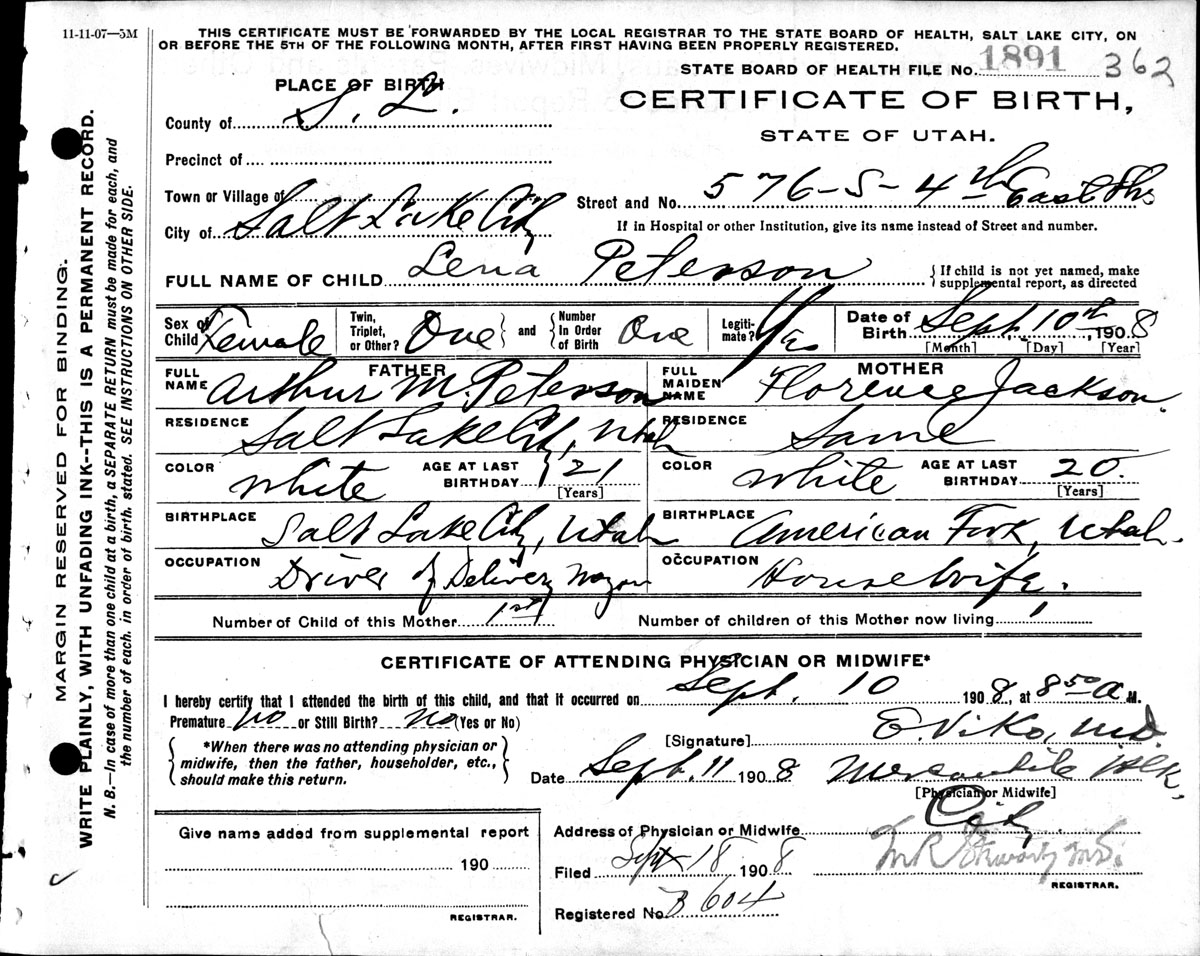 11-11-07—5M
THIS CERTIFICATE MUST BE FORWARDED BY THE LOCAL REGISTRAR TO THE STATE BOARD OF HEALTH, SALT LAKE CITY, ON
OR BEFORE THE 5TH OF THE FOLLOWING MONTH, AFTER FIRST HAVING BEEN PROPERLY REGISTERED.
STATE BOARD OF HEALTH FILE No. 1891 362
PLACE OF BIRTH
CERTIFICATE OF BIRTH,
STATE OF UTAH.
County of S. L.
Precinct of
Town or Village of
Street and No. 576-S-4th East Str
City of Salt Lake City
If in Hospital or other Institution, give its name instead of Street and number.
FULL NAME OF CHILD Lena Peterson
{If child is not yet named, make
supplemental report, as directed
Sex of Child Female Twin, Triplet, or Other? One } and { Number In Order of Birth One Legiti- mate? Yes Date of Birth Sept. 10th, 1908
[Month] [Day] [Year]
FATHER MOTHER
FULL NAME Arthur M. Peterson FULL MAIDEN NAME Florence Jackson.
RESIDENCE Salt Lake City, Utah RESIDENCE Same
COLOR White AGE AT LAST BIRTHDAY 21 [Years] COLOR White AGE AT LAST BIRTHDAY 20 [Years]
BIRTHPLACE Salt Lake City, Utah BIRTHPLACE American Fork, Utah.
OCCUPATION Driver of Delivery Wagon OCCUPATION Housewife.
Number of Child of this Mother 1st Number of children of this Mother now living 1
CERTIFICATE OF ATTENDING PHYSICIAN OR MIDWIFE*
I hereby certify that I attended the birth of this child, and that it occurred on Sept. 10 1908, at 8 50 a M.
Premature No or Still Birth? No (Yes or No)
[Signature] E. Viko, M.D.
{*When there was no attending physician or
midwife, then the father, householder, etc.,
should make this return.}
Date Sept. 11 1908 Mercantile Blk,
[Physician or Midwife]
Address of Physician or Midwife City
Give name added from supplemental report
190
REGISTRAR.
Filed Sept 18 1908
REGISTRAR.
Registered No. B 604
MARGIN RESERVED FOR BINDING.
WRITE PLAINLY, WITH UNFADING INK--THIS IS A PERMANENT RECORD.
N. B.—In case of more than one child at a birth, a SEPARATE RETURN must be made for each, and
the number of each, in order of birth, stated. SEE INSTRUCTIONS ON OTHER SIDE.